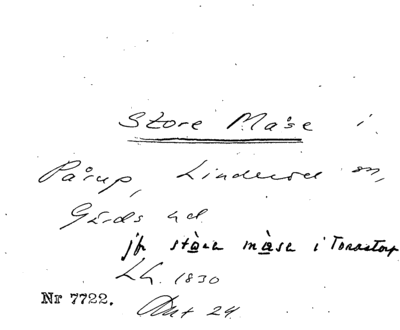 Store Måse i
Pårup, Linderöd sn,
Gärds hd
jfr stòra màsa i Torastorp
Lh. 1830
Nr 7722. Akt 24